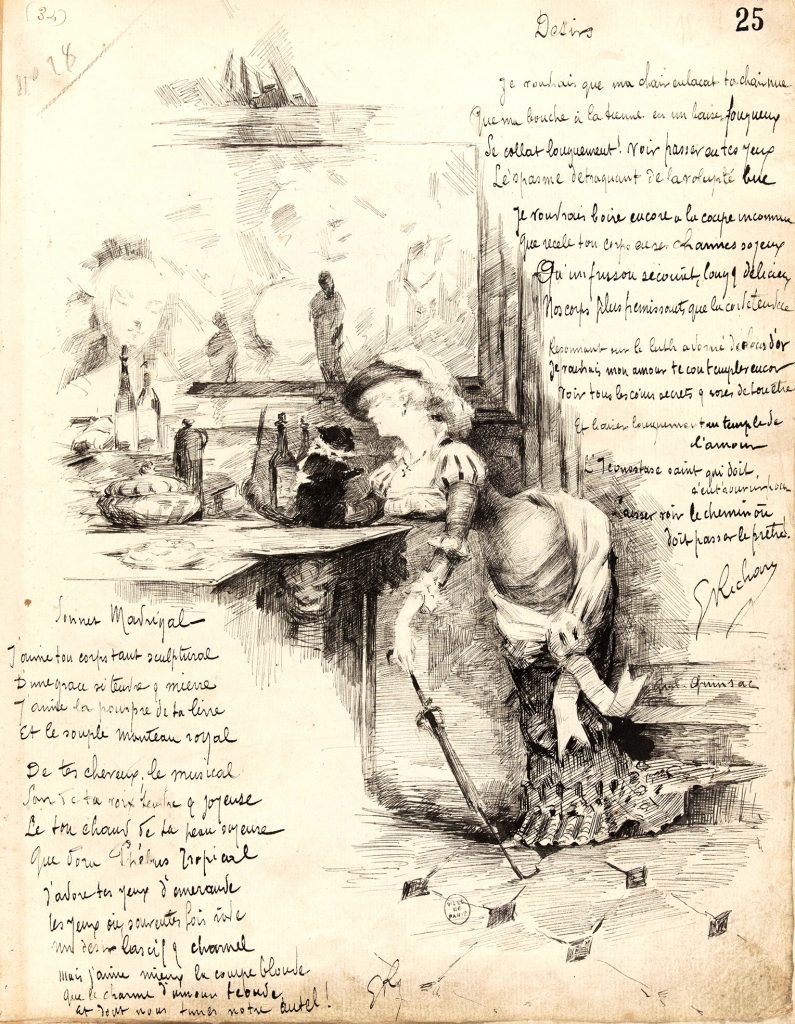 (34)
25
28
Desirs
Je voudrais que ma chair enlaçat ta chair nue
Que ma bouche à la tienne en un baiser fougueux
Se collat longuement! Voir passer en tes yeux
Le spasme détraquant de la volupté bue
Je voudrais boire encore a la coupe inconnue
Que recele ton corps aux charmes soyeux
Qu'un frisson secouât, long & délicieux
Nos corps plus fremissants que la corde tendue
Resonnant sur le luth adorné de clous d'or
Je voudrais mon amour te contempler encor
Voir tous les coins secrets & roses de ton être
Et baiser longuement au temple de
l'amour
L'Iconostase saint qui doit
Laisser voir le chemin où
doit passer le prêtre.
G Richard
Sonnet Madrigal
J'aime ton corps tant sculptural
D'une grace si tendre & mievre
J'aime la pourpre de ta levre
Et le souple manteau royal
De tes cheveux, le musical
Son de ta voix tendre & joyeuse
Le ton chaud de ta peau soyeuse
Que dora Phébus tropical
J'adore tes yeux d'emeraude
Les yeux où souventes fois rode
un desir lascif & charnel
Mais j'aime mieux la coupe blonde
Que le charme d'amour
et dont nous notre autel!
VILLE
DE
PARIS